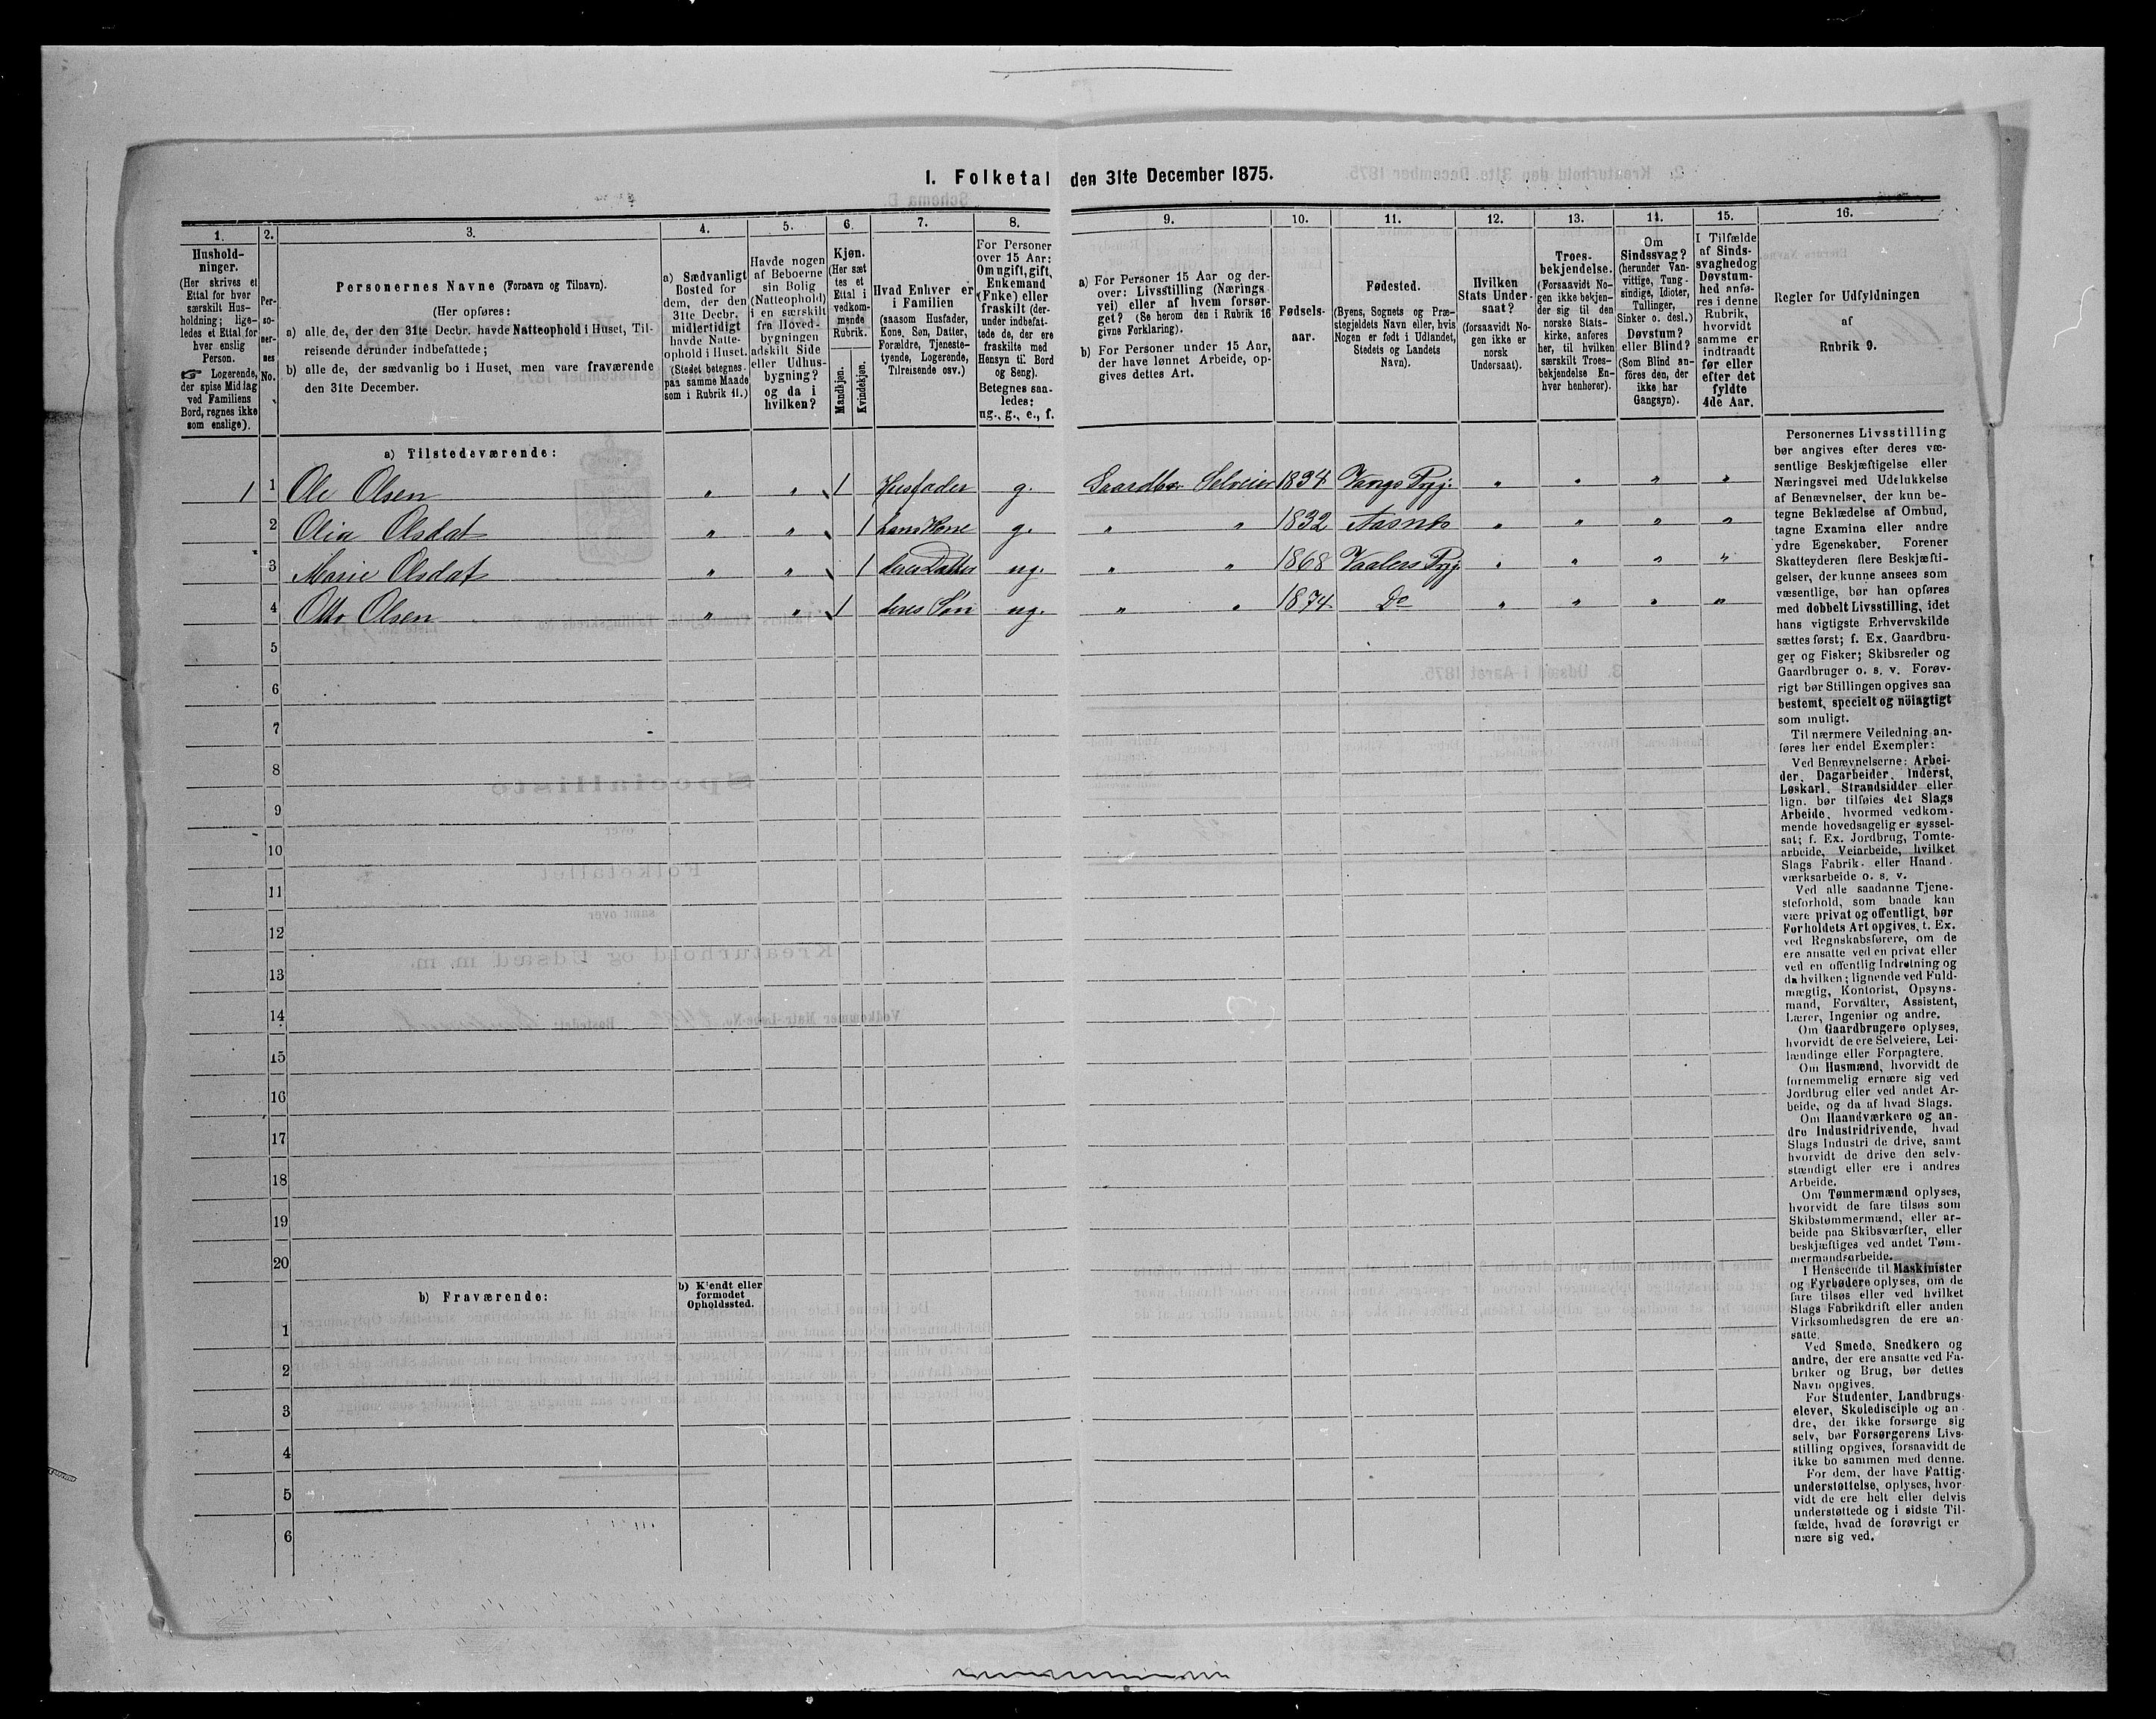 I. Folketal den 31te December 1875.
1.
Hushold-
ninger.
(Her skrives et
Ettal for hver
særskilt Hus-
holdning; lige-
ledes et Ettal for
hver enslig
Person.
☞ Logerende,
der spise Middag
ved Familiens
Bord, regnes ikke
som enslige).
2.
Per-
so-
ner-
nes
No.
3.
Personernes Navne (Fornavn og Tilnavn).
(Her opføres:
a) alle de, der den 31te Decbr. havde Natteophold i Huset, Til-
reisende derunder indbefattede;
b) alle de, der sædvanlig bo i Huset, men vare fraværende
den 31te December.
4.
a) Sædvanligt
Bosted for
dem, der den
31te Decbr.
midlertidigt
havde Natte-
ophold i Huset.
(Stedet betegnes
paa samme Maade
som i Rubrik 11.)
5.
Havde nogen
af Beboerne
sin Bolig
(Natteophold)
i en særskilt
fra Hoved-
bygningen
adskilt Side
eller Udhus-
bygning?
og da i
hvilken?
6.
Kjøn.
(Her sæt
tes et
Ettal i
vedkom-
mende
Rubrik.
Mandkjøn.
Kvindekjøn.
7.
Hvad Enhver er
i Familien
(saasom Husfader,
Kone, Søn, Datter,
Forældre, Tjeneste-
tyende, Logerende,
Tilreisende osv.)
8.
For Personer
over 15 Aar:
Om ugift, gift,
Enkemand
(Enke) eller
fraskilt (der-
under indbefat-
tede de, der ere
fraskilte med
Hensyn til Bord
og Seng).
Betegnes saa-
ledes:
ug., g., e., f.
9.
a) For Personer 15 Aar og der-
over: Livsstilling (Nærings
vei) eller af hvem forsør-
get? (Se herom den i Rubrik 16
givne Forklaring).
b) For Personer under 15 Aar,
der have lønnet Arbeide, op-
gives dettes Art.
10.
Fødsels-
aar.
11.
Fødested.
(Byens, Sognets og Præ-
stegjeldets Navn eller, hvis
Nogen er født i Udlandet,
Stedets og Landets
Navn).
12.
Hvilken
Stats Under-
saat?
(forsaavidt No-
gen ikke er
norsk
Undersaat).
13.
Troes-
bekjendelse.
(Forsaavidt No-
gen ikke bekjen-
der sig til den
norske Stats-
kirke, anføres
her, til hvilken
særskilt Troes-
bekjendelse En-
hver henhører).
14.
Om
Sindssvag?
(herunder Van-
vittige, Tung-
sindige, Idioter,
Tullinger,
Sinker o. desl.)
Døvstum?
eller Blind?
(Som Blind an-
föres den, der
ikke har
Gangsyn).
15.
I Tilfælde
af Sinds-
svaghed og
Døvstum-
hed anfø-
res i denne
Rubrik,
hvorvidt
samme er
indtraadt
før eller
efter det
fyldte
4de Aar.
16.
Regler for Udfyldningen
af
Rubrik 9.
a) Tilstedeværende:
1 1 Ole Olsen " " 1 Husfader g. Gaardbr Selveier 1834 Vangs Prgj. " " " "
2 Olia Olsdat " " 1 hans Kone g. " " 1832 Aasnes " " " "
3 Marie Olsdat " " 1 deres Datter ug. " " 1868 Vaalers Prgj. " " " "
4 Otto Olsen " " 1 deres Søn ug. " " 1874 Do " " " "
5
6
7
8
9
10
11
12
13
14
15
16
17
18
19
20
b) Fraværende:
b) Kjendt eller
formodet
Opholdssted.
1
2
3
4
5
6
Personernes Livsstilling
bør angives efter deres væ-
sentlige Beskjæftigelse eller
Næringsvei med Udelukkelse
af Benævnelser, der kun be-
tegne Beklædelse af Ombud,
tagne Examina eller andre
ydre Egenskaber. Forener
Skatteyderen flere Beskjæfti-
gelser, der kunne ansees som
væsentlige, bør han opføres
med dobbelt Livsstilling, idet
hans vigtigste Erhvervskilde
sættes først; f. Ex. Gaardbru-
ger og Fisker; Skibsreder og
Gaardbruger o. s. v. Forøv-
rigt bør Stillingen opgives saa
bestemt, specielt og nöiagtigt
som muligt.
Til nærmere Veiledning an-
føres her endel Exempler:
Ved Benævnelserne: Arbei-
der, Dagarbeider, Inderst,
Løskarl, Strandsidder eller
lign. bør tilføies det Slags
Arbeide, hvormed vedkom-
mende hovedsagelig er syssel-
sat; f. Ex. Jordbrug, Tomte-
arbeide, Veiarbeide, hvilket
Slags Fabrik- eller Haand-
værksarbeide o. s. v.
Ved alle saadanne Tjene-
steforhold, som baade kan
være privat og offentligt, bør
Forholdets Art opgives, t. Ex.
ved Regnskabsførere, om de
ere ansatte ved en privat eller
ved en offentlig Indretning og
da hvilken; lignende ved Fuld-
mægtig, Kontorist, Opsyns-
mand, Forvalter, Assistent,
Lærer, Ingeniør og andre.
Om Gaardbrugere oplyses,
hvorvidt de ere Selveiere, Lei-
lændinge eller Forpagtere.
Om Husmænd, hvorvidt de
fornemmelig ernære sig ved
Jordbrug eller ved andet Ar-
beide, og da af hvad Slags.
Om Haandværkere og an-
dre Industridrivende, hvad
Slags Industri de drive, samt
hvorvidt de drive den selv-
stændigt eller ere i andres
Arbeide.
Om Tømmermænd oplyses,
hvorvidt de fare tilsøs som
Skibstømmermænd, eller ar-
beide paa Skibsværfter, eller
beskjæftiges ved andet Tøm-
mermandsarbeide.
I Henseende til Maskinister
og Fyrbødere oplyses, om de
fare tilsøs eller ved hvilket
Slags Fabrikdrift eller anden
Virksomhedsgren de ere an-
satte.
Ved Smede, Snedkere og
andre, der ere ansatte ved Fa-
briker og Brug, bør dettes
Navn opgives.
For Studenter, Landbrugs-
elever, Skoledisciple og an-
dre, der ikke forsørge sig
selv, bør Forsørgerens Livs-
stilling opgives, forsaavidt de
ikke bo sammen med denne.
For dem, der have Fattig-
understøttelse, oplyses, hvor-
vidt de ere helt eller delvis
understøttede og i sidste Til-
fælde, hvad de forøvrigt er
nære sig ved.